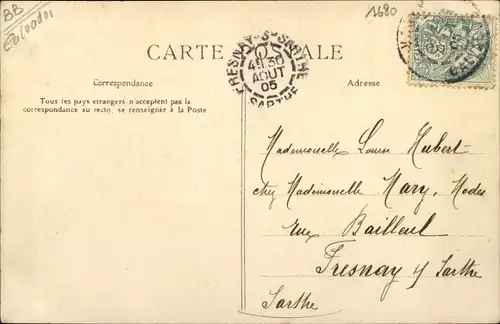 BB
Calvados
1680
CARTE POSTALE
FRESNAY-S-SARTHE
4H 30
AOUT
05
SARTHE
Correspondance
Adresse
Tous les pays etrangers n'acceptent pas la
correspondance au recto, se renseigner à la Poste
Mademoiselle Louise Hubert-
chez Mademoiselle Mary, Modes
Rue Bailleul
Fresnay s/ Sarthe
Sarthe